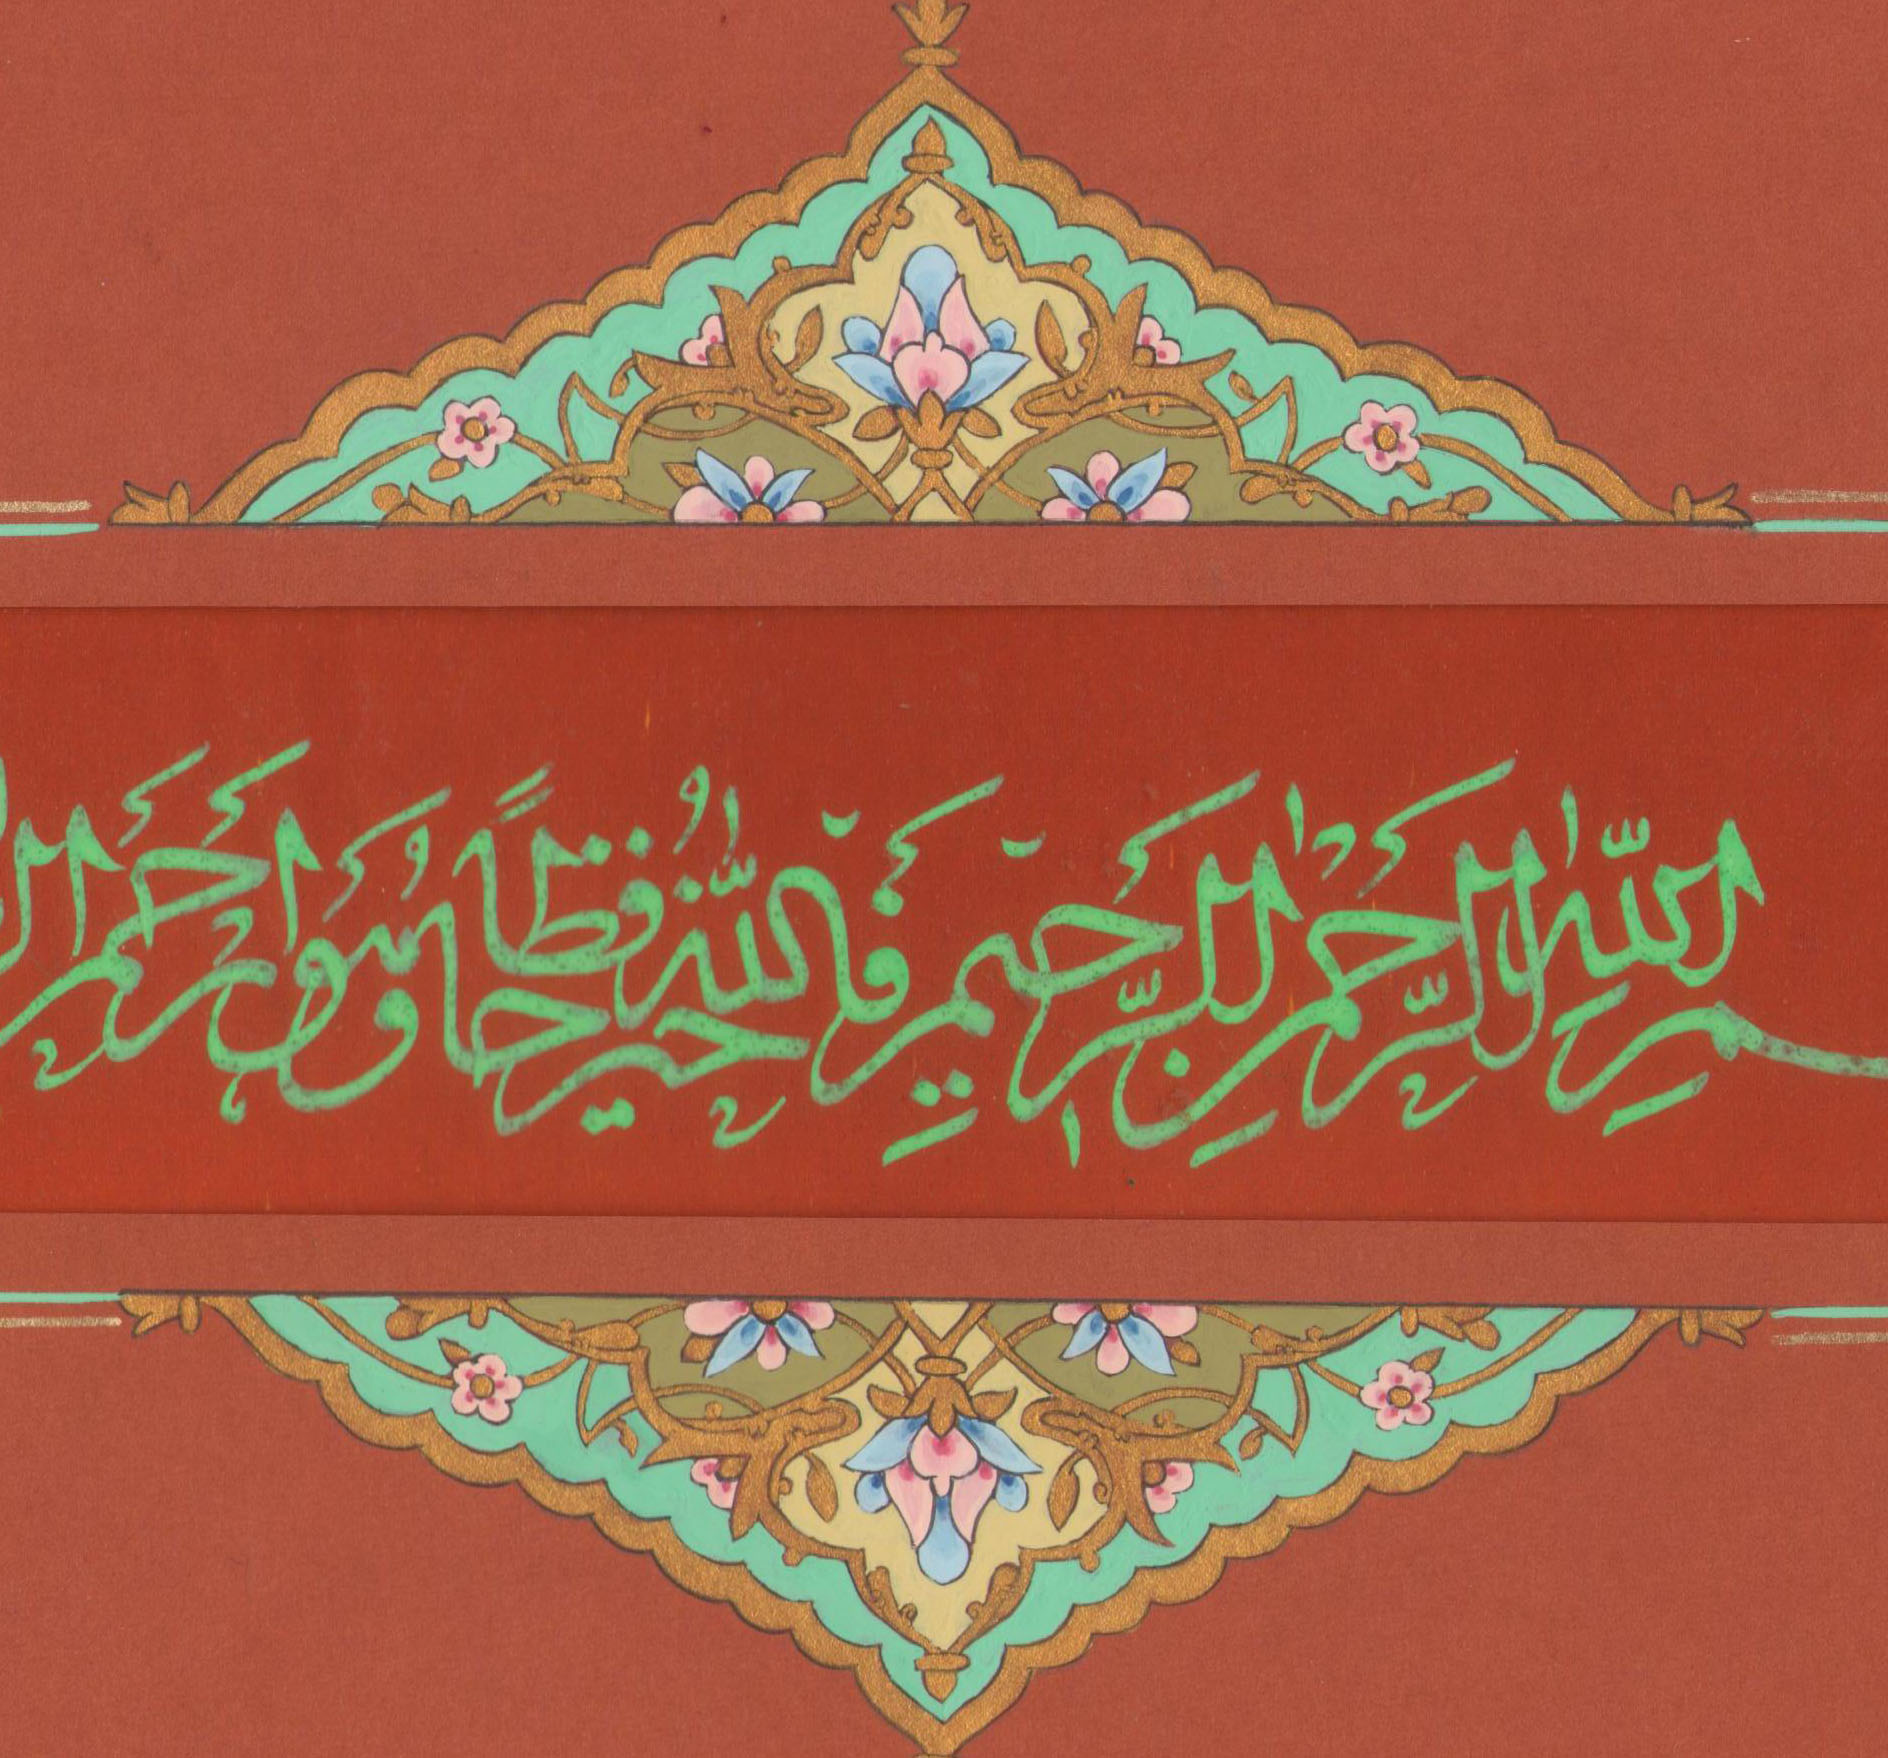 مِ اللّٰهِ الرَّحْمٰنِ الرَّحِيمِ فَاللّٰهُ خَيْرٌ حَافِظًا وَهُوَ أَرْحَمُ